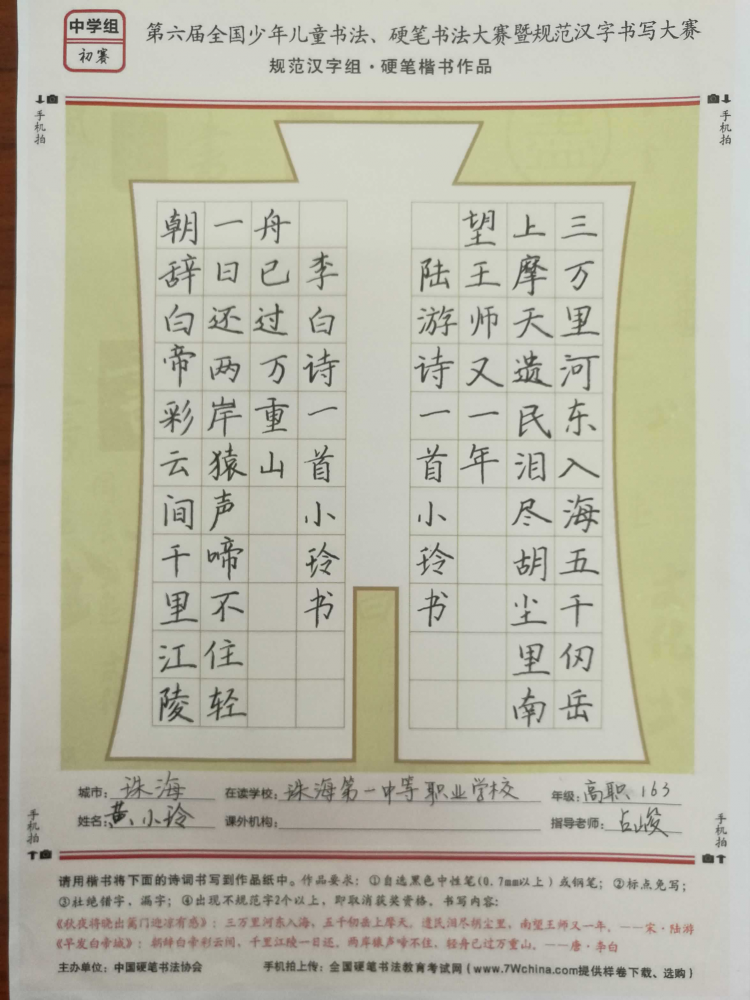 中学组
初赛
第六届全国少年儿童书法、硬笔书法大赛暨规范汉字书写大赛
规范汉字组·硬笔楷书作品
手机拍
手机拍
三万里河东入海五千仞岳
上摩天遗民泪尽胡尘里南
望王师又一年
陆游诗一首小玲书
朝辞白帝彩云间千里江陵
一日还两岸猿声啼不住轻
舟已过万重山
李白诗一首小玲书
城市：珠海 在读学校：珠海第一中等职业学校 年级：高职163
姓名：黄小玲 课外机构： 指导老师：占峻
手机拍
手机拍
请用楷书将下面的诗词书写到作品纸中。作品要求：①自选黑色中性笔(0.7mm以上)或钢笔；②标点免写；
③杜绝错字、漏字；④出现不规范字2个以上，即取消获奖资格。书写内容：
《秋夜将晓出篱门迎凉有感》：三万里河东入海，五千仞岳上摩天。遗民泪尽胡尘里，南望王师又一年。——宋·陆游
《早发白帝城》：朝辞白帝彩云间，千里江陵一日还。两岸猿声啼不住，轻舟已过万重山。——唐·李白
主办单位：中国硬笔书法协会 手机拍上传：全国硬笔书法教育考试网(www.7Wchina.com提供样卷下载、选购)